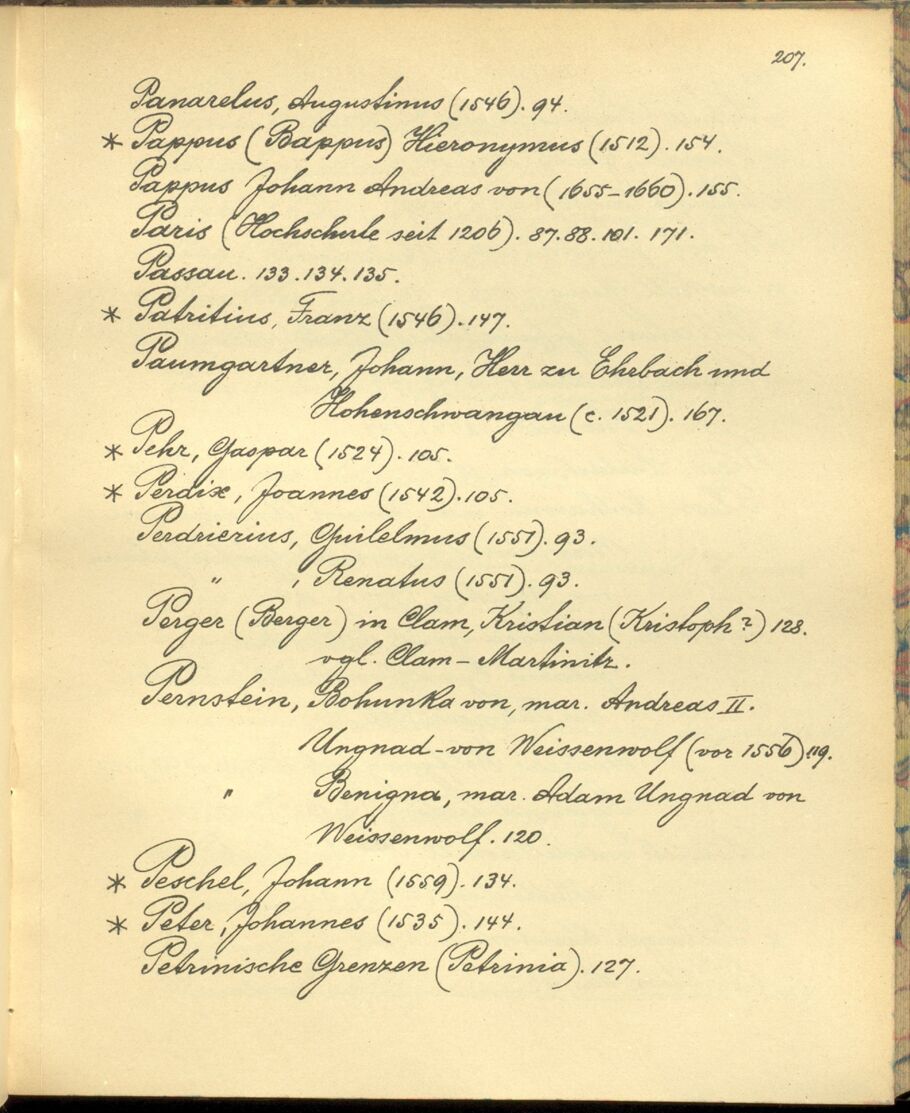 207.
Panarelus, Augustinus (1546). 94.
* Pappus (Bappus) Hieronymus (1512). 154.
Pappus Johann Andreas von (1655-1660). 155.
Paris (Hochschule seit 1206). 87. 88. 101. 171.
Passau. 133. 134. 135.
* Patritius, Franz (1546). 147.
Paumgartner, Johann, Herr zu Ehrbach und
Hohenschwangau (c. 1521). 167.
* Pehr, Gaspar (1524). 105.
* Perdix, Joannes (1542). 105.
Perdrierius, Guilelmus (1551). 93.
" , Renatus (1551). 93.
Perger (Berger) in Clam, Kristian (Kristoph?) 128.
vgl. Clam-Martinitz.
Pernstein, Bohunka von, mar. Andreas II.
Ungnad-von Weissenwolf (vor 1556) 119.
" Benigna, mar. Adam Ungnad von
Weissenwolf. 120.
* Peschel, Johann (1559). 134.
* Peter, Johannes (1535). 144.
Petrinische Grenzen (Petrinia). 127.